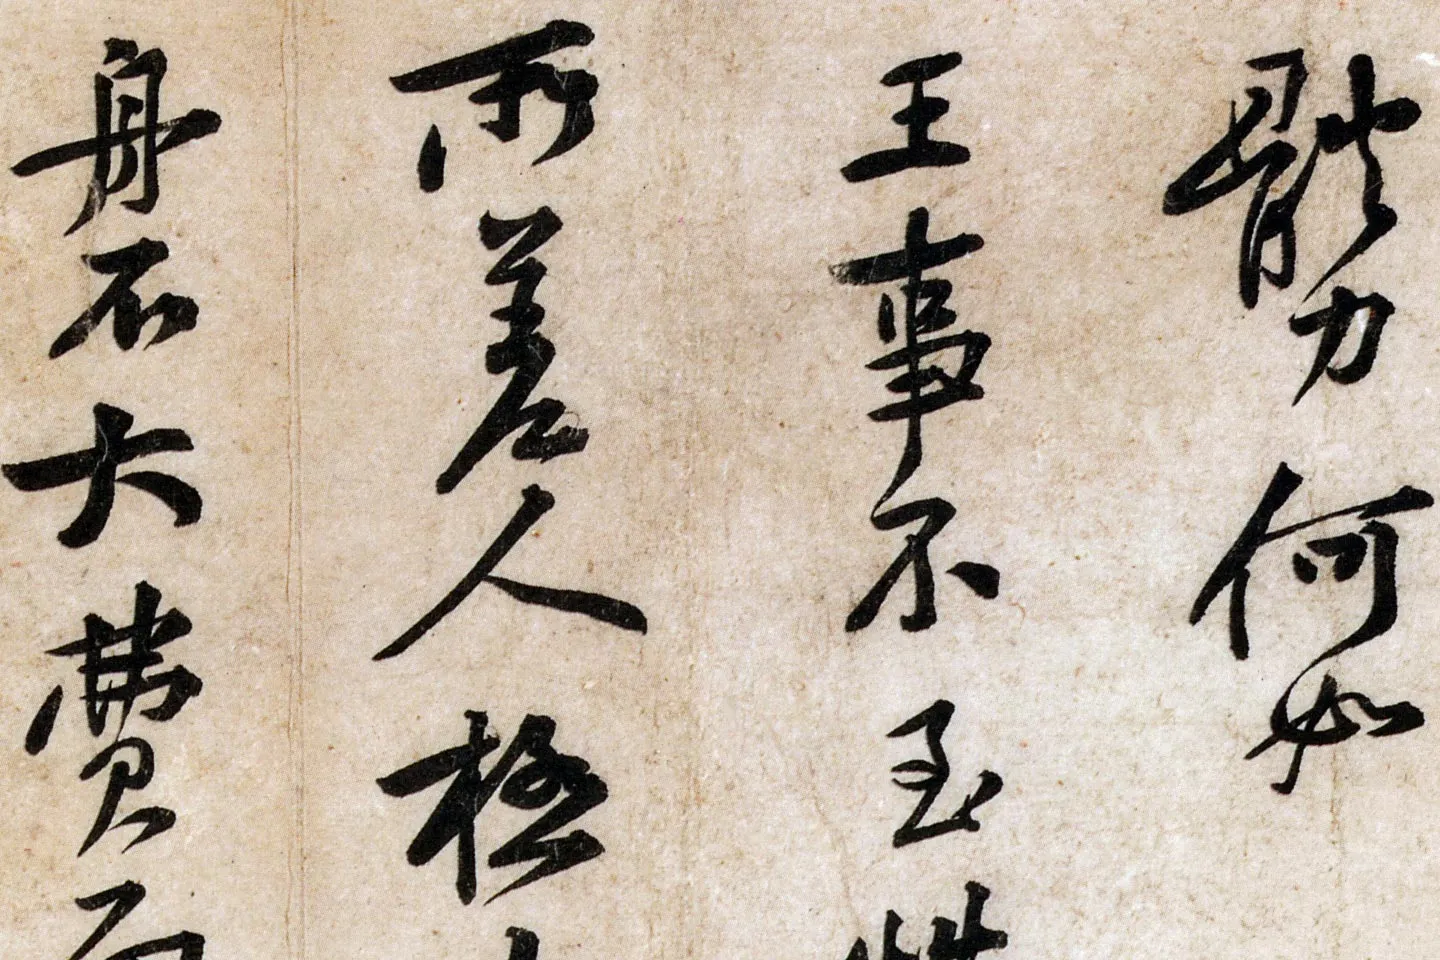 體力何如
王事不至
所差人極
舟不大費